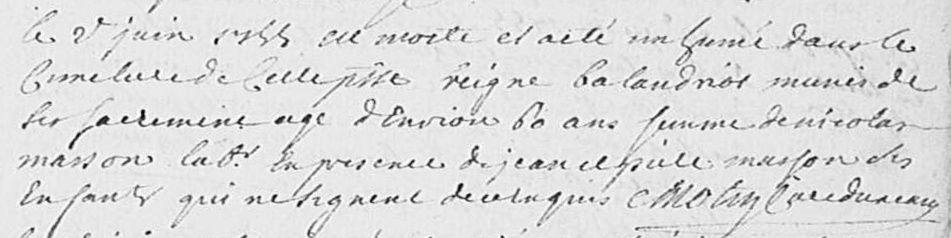 le 2e juin 1755 est morte et a eté inhumé dans le
Cimetiere de Cette psse reigne balandriot munis de
ses sacrement agé d'Environ 60 ans femme de nicolas
masson labr En presence de jean et masson ses
Enfants qui ne signent de ce enquis Curé